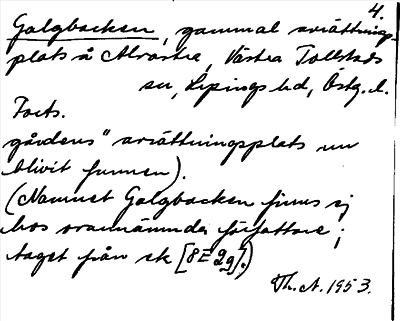 4.
Galgbacken, gammal avrättnings-
plats å Alvastra, Västra Tollstads
sn, Lysings hd, Östg. l.
Forts.
gårdens" avrättningsplats nu
blivit funnen).
(Namnet Galgbacken finns ej
hos ovannämnda författare;
taget från ek [8E 2g].)
Th. A. 1953.